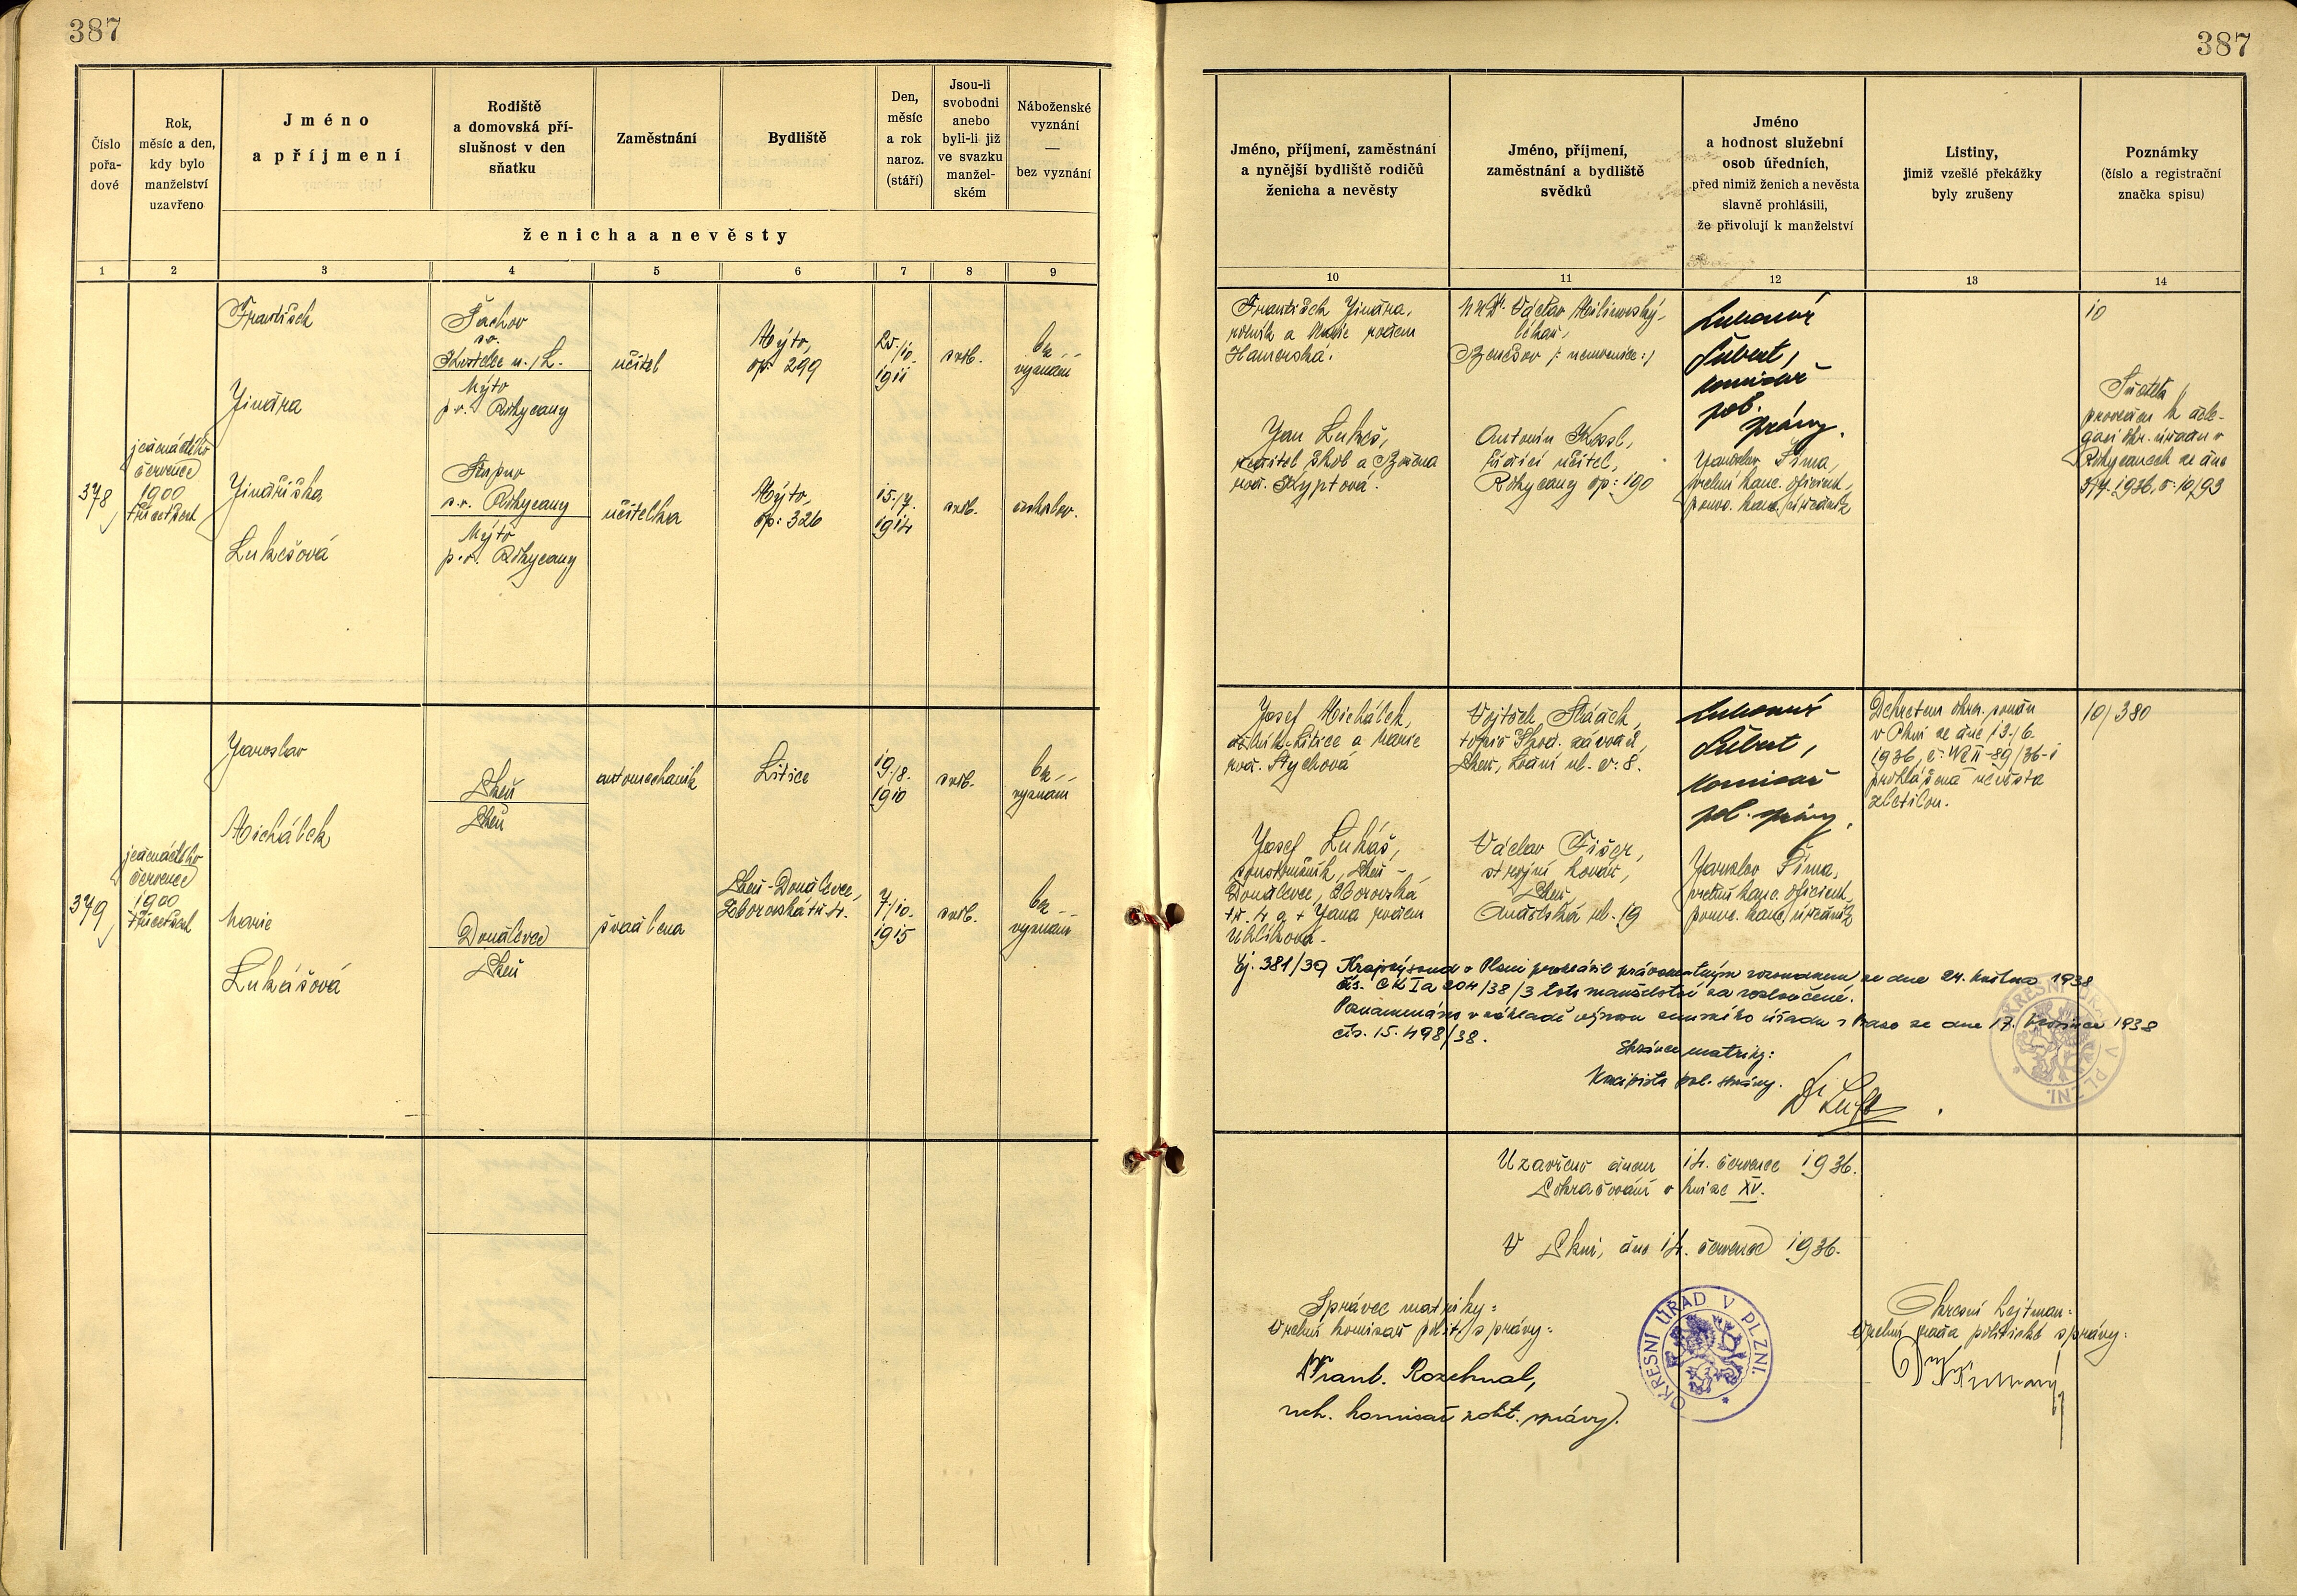 387
387
Číslo
pořa-
dové
Rok,
měsíc a den,
kdy bylo
manželství
uzavřeno
Jméno
a příjmení
Rodiště
a domovská pří-
slušnost v den
sňatku
Zaměstnání
Bydliště
Den,
měsíc
a rok
naroz.
(stáří)
Jsou-li
svobodni
anebo
byli-li již
ve svazku
manžel-
ském
Náboženské
vyznání
—
bez vyznání
ženicha a nevěsty
1 2 3 4 5 6 7 8 9
Jméno, příjmení, zaměstnání
a nynější bydliště rodičů
ženicha a nevěsty
Jméno, příjmení,
zaměstnání a bydliště
svědků
Jméno
a hodnost služební
osob úředních,
před nimiž ženich a nevěsta
slavně prohlásili,
že přivolují k manželství
Listiny,
jimiž vzešlé překážky
byly zrušeny
Poznámky
(číslo a registrační
značka spisu)
10 11 12 13 14
378
jedenáctého
července
1900
třicet šest
František
Jindra
Jindřiška
Lukešová
Kostelec n./L.
Mýto
p.o. Rokycany
s.o. Rokycany
Mýto
p.o. Rokycany
učitel
učitelka
Mýto,
čp. 299
Mýto,
čp. 326
25./10.
1911
15./7.
1914
svob.
svob.
bez
vyznání
českobr.
František Jindra,
rolník a Marie rozem
Hamerská.
Jan Lukeš,
ředitel škol a Božena
roz. Kryptová.
Václav Milinovský,
lékař,
Benešov /: nemocnice :/
Antonín Kessl,
řídící učitel,
Rokycany čp: 190
Lubomír
Šubert,
komisař
pol.
správy.
Jaroslav Šíma,
vrchní kanc. oficiant,
pomoc. kanc. úředník
10
Sňatek
proveden k dele-
gaci okr. úřadu v
Rokycanech ze dne
1936, č: 10/93
379
jedenáctého
července
1900
třicet šest
Jaroslav
Michálek
Marie
Lukášová
Plzeň
Plzeň
Doudlevce
Plzeň
automechanik
švadlena
Litice
Plzeň-Doudlevce,
Zborovská tř. 4.
19./8.
1910
7./10.
1915
svob.
svob.
bez
vyznání
bez
vyznání
Josef Michálek,
dělník-Litice a Marie
roz. Stychová
Josef Lukáš,
soustružník, Plzeň-
Doudlevce, Zborovská
tř. 4 a + Jana rozem
Uhlíková.
Vojtěch Sládek,
topič Škod. závodů,
Plzeň, Lodní ul. č: 8.
Václav Fišer,
strojní kovář,
Plzeň,
Andělská ul. 19
Lubomír
Šubert,
komisař
pol. správy.
Jaroslav Šíma,
vrchní kanc. oficiant
pomoc. kanc. úředník
Dekretem okres. soudu
v Plzni ze dne 13./6.
1936, č: Nc II-89/36-1
prohlášena nevěsta
zletilou.
10/380
Čj. 381/39 Krajský soud v Plzni prohlásil právomocným rozsudkem ze dne 24. května 1938
čís. Ck Ia 204/38/3 toto manželství za rozloučené.
Poznamenáno v základě výnosu zemského úřadu v Praze ze dne 17. 1938
čís. 15.498/38.
Správce matriky:
Koncipista pol. správy.
Uzavřeno dnem 14. července 1936.
Pokračování v knize XV.
V Plzni, dne 14. července 1936.
Správce matriky:
Vrchní komisař polit. správy:
Frant. Rozehnal,
vrch. komisař polit. správy.
OKRESNÍ ÚŘAD V PLZNI.
Okresní hejtman:
Vrchní rada politické správy: